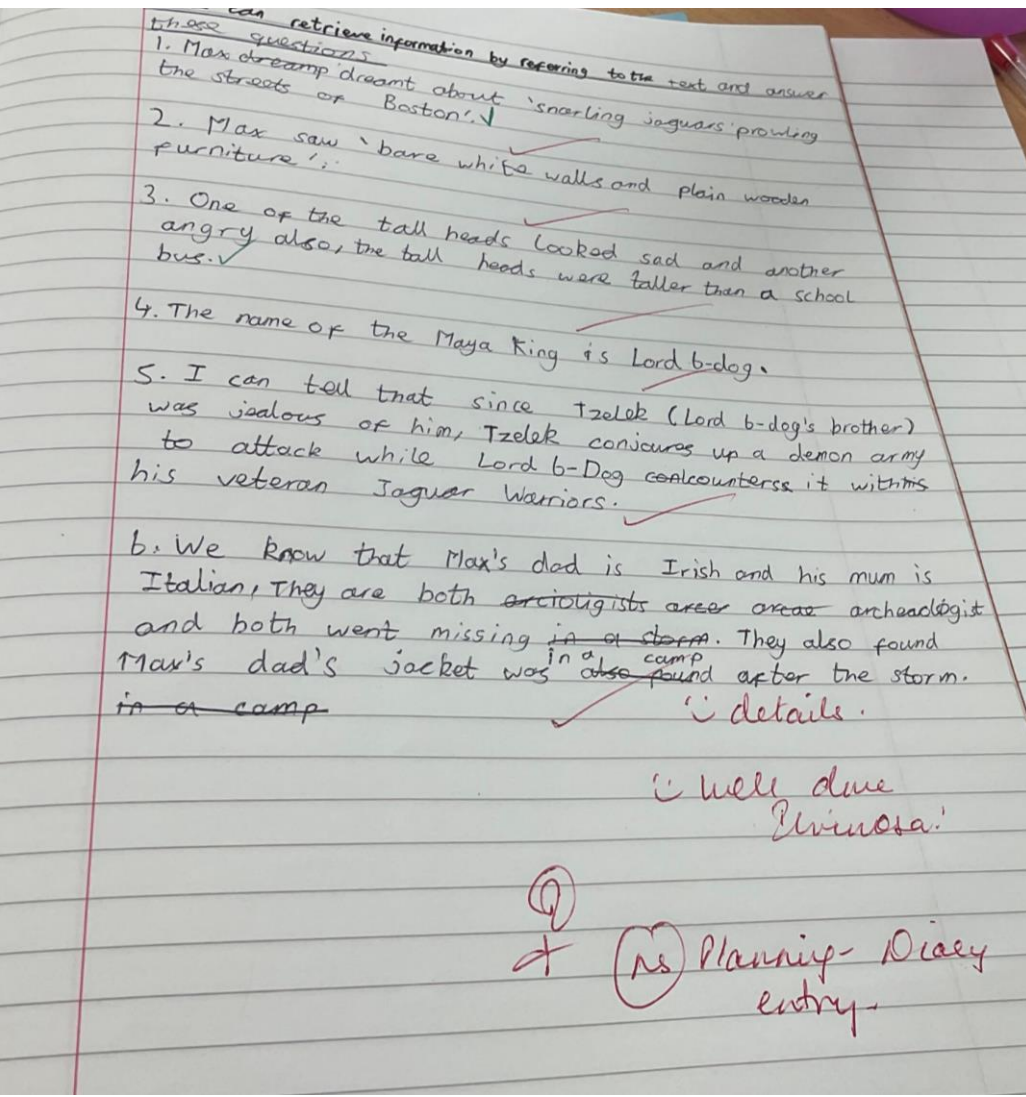 can retrieve information by referring to the text and answer
these questions
1. Max dreamp dreamt about 'snarling jaguars' prowling
the streets of Boston'.
2. Max saw 'bare white walls and plain wooden
furniture'.
3. One of the tall heads looked sad and another
angry also, the tall heads were taller than a school
bus.
4. The name of the Maya King is Lord 6-dog.
5. I can tell that since Tzelek (Lord 6-dog's brother)
was jealous of him, Tzelek conjoures up a demon army
to attack while Lord 6-Dog counterss it with his
his veteran Jaguar Warriors.
6. We know that Max's dad is Irish and his mum is
Italian, They are both arciouligists archeaologist
and both went missing in a storm. They also found
in a camp
Max's dad's jacket was also found after the storm.
in a camp
details.
well done
Q
NS Planning - Diary
entry